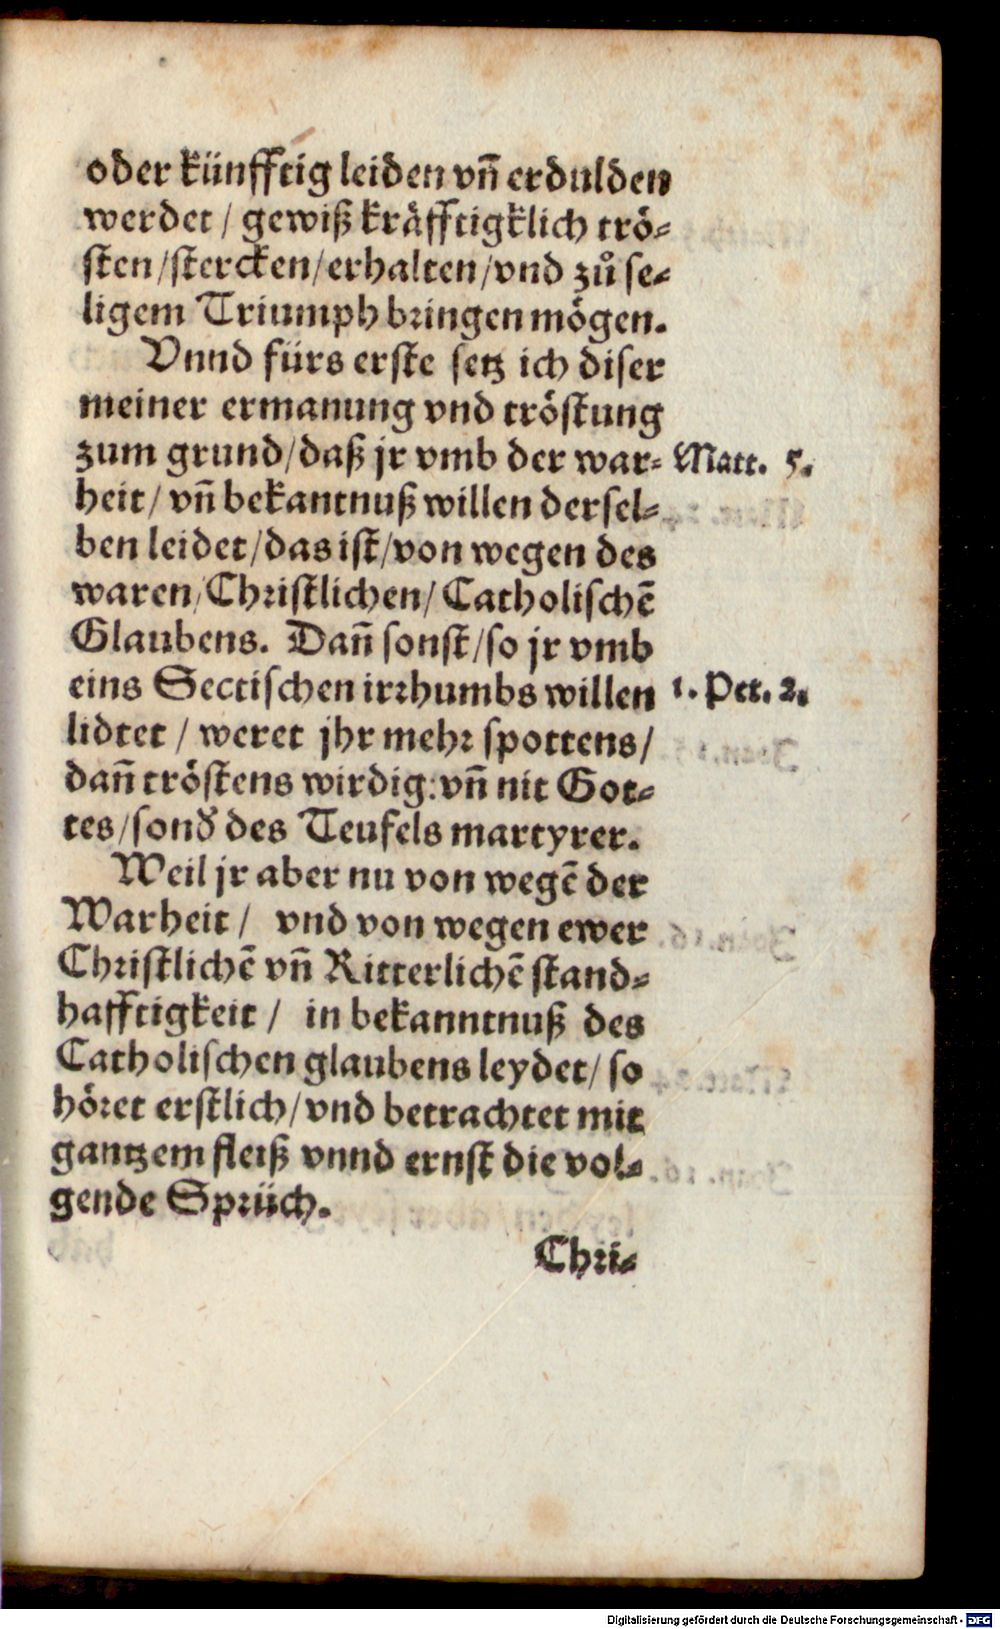 oder künfftig leiden vñ erdulden
werdet / gewiß kräfftigklich trö-
sten / stercken / erhalten / vnd zů se-
ligem Triumph bringen mögen.
Vnnd fürs erste setz ich diser
meiner ermanung vnd tröstung
zum grund / daß jr vmb der war- Matt. 5.
heit / vñ bekantnuß willen dersel-
ben leidet / das ist / von wegen des
waren / Christlichen / Catholischẽ
Glaubens. Dañ sonst / so jr vmb
eins Sectischen irrhumbs willen 1. Pet. 2.
lidtet / weret jhr mehr spottens /
dañ tröstens wirdig: vñ nit Got-
tes / sond̃ des Teufels martyrer.
Weil jr aber nu von wegẽ der
Warheit / vnd von wegen ewer
Christlichẽ vñ Ritterlichẽ stand-
hafftigkeit / in bekanntnuß des
Catholischen glaubens leydet / so
höret erstlich / vnd betrachtet mit
gantzem fleiß vnnd ernst die vol-
gende Sprüch.
Chri-
Digitalisierung gefördert durch die Deutsche Forschungsgemeinschaft - DFG